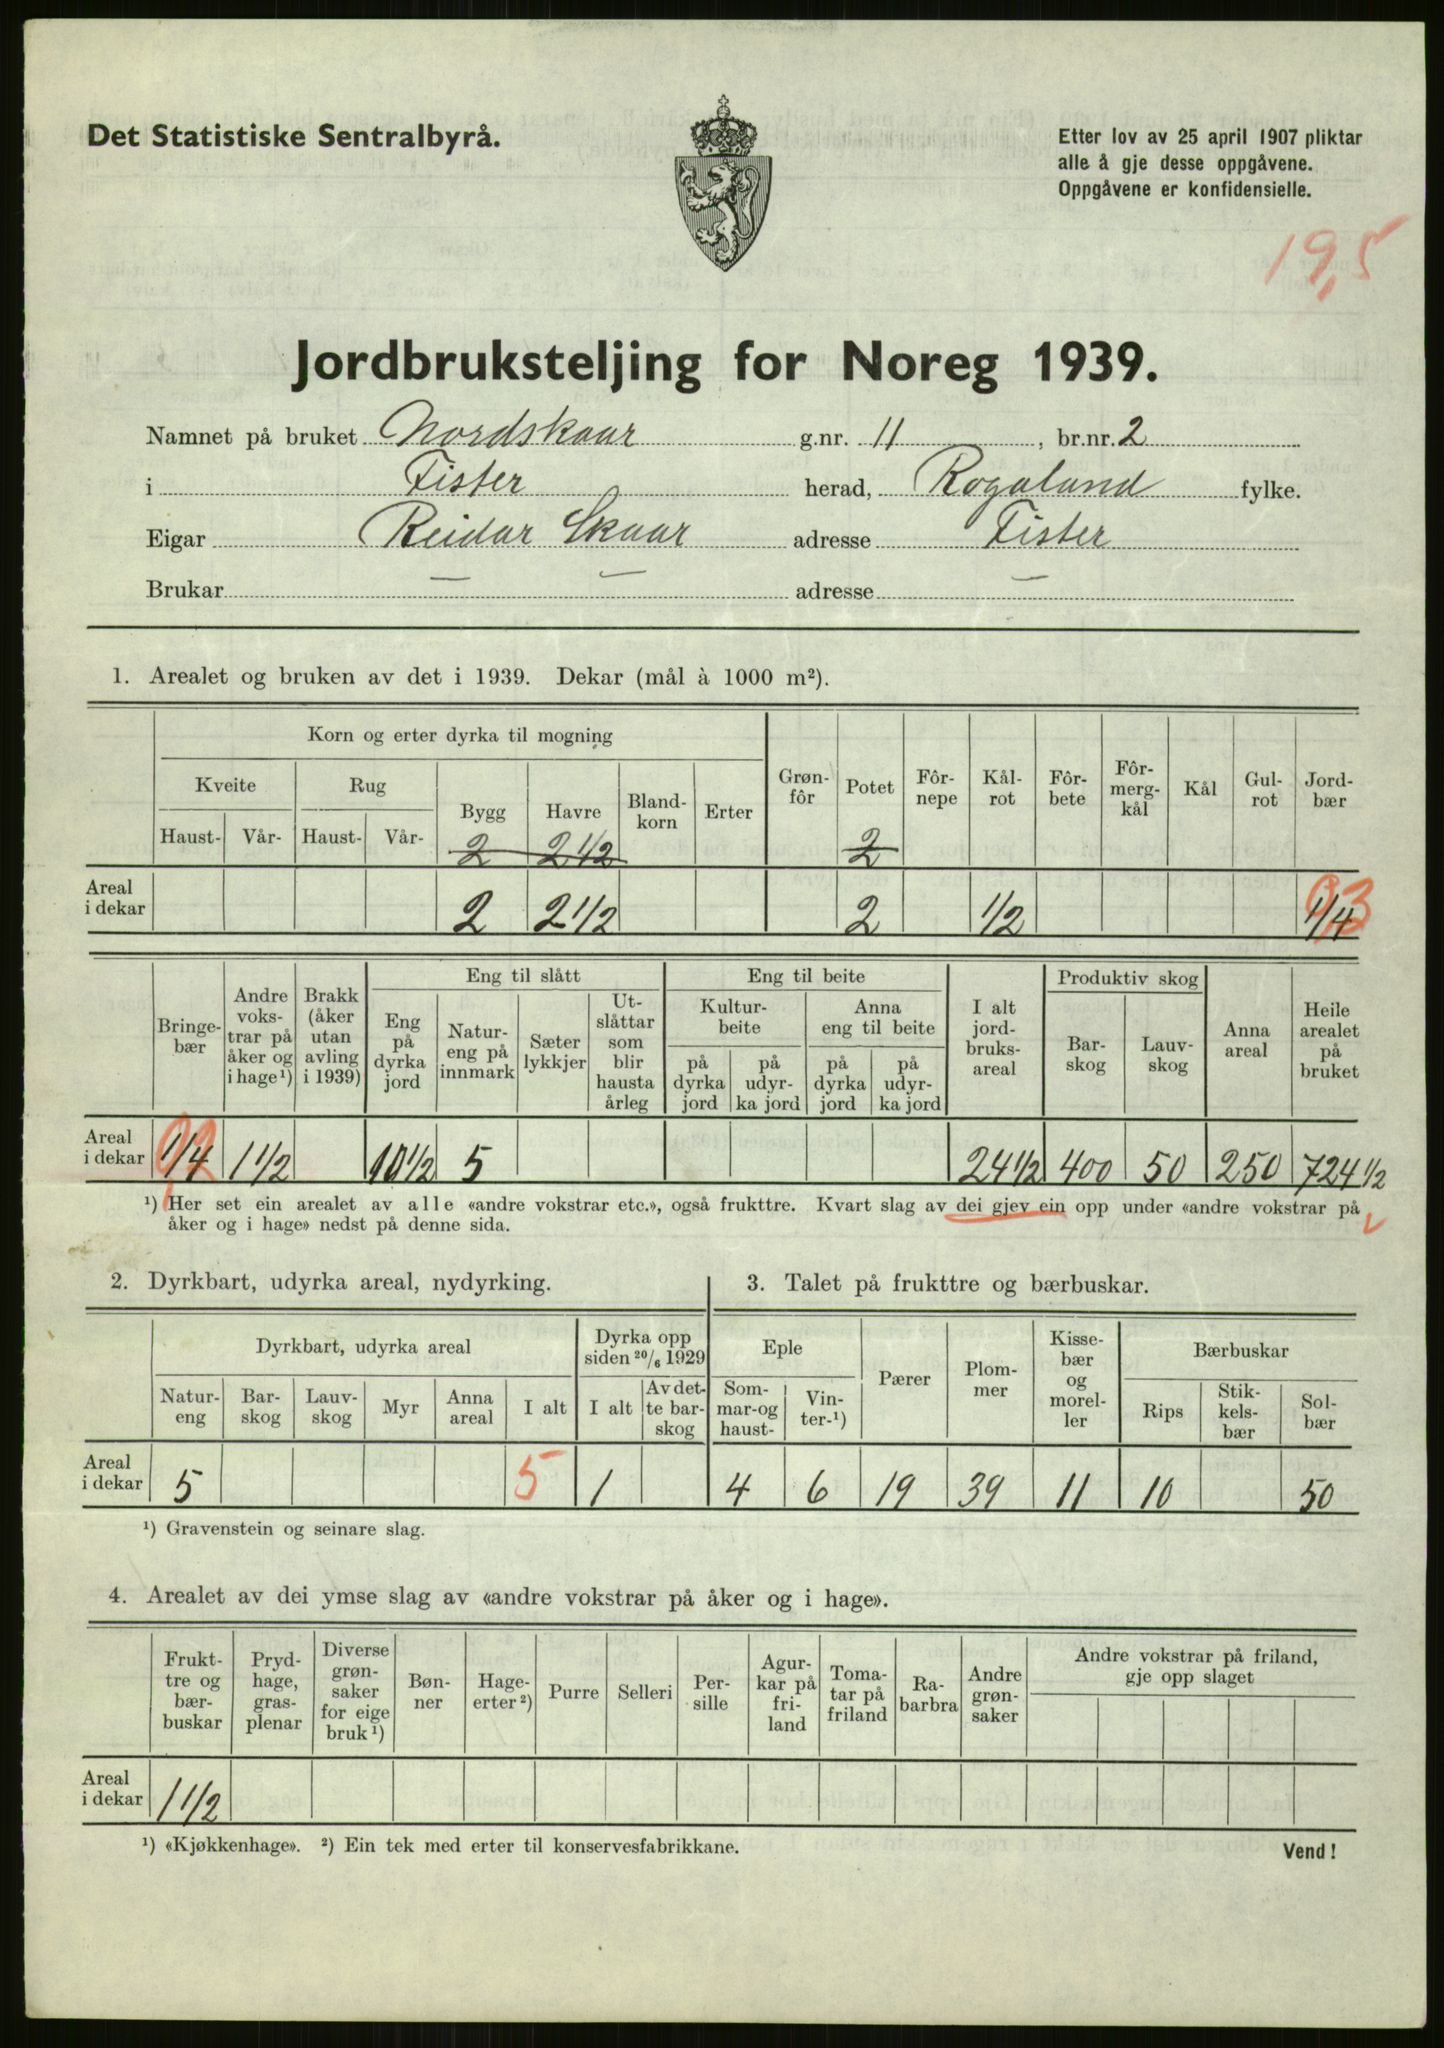 Det Statistiske Sentralbyrå.
Etter lov av 25 april 1907 pliktar
alle å gje desse oppgåvene.
Oppgåvene er konfidensielle.
19,5
Jordbruksteljing for Noreg 1939.
Namnet på bruket Nordskaar g.nr. 11, br.nr. 2
i Fister herad, Rogaland fylke.
Eigar Reidar Skaar adresse Fister
Brukar — — adresse —
1. Arealet og bruken av det i 1939. Dekar (mål à 1000 m²).
Korn og erter dyrka til mogning
Kveite Rug Bygg Havre Blandkorn Erter Grønfôr Potet Fôrnepe Kålrot Fôrbete Fôrmergkål Kål Gulrot Jordbær
Haust- Vår- Haust- Vår-
2 2 1/2 2
Areal i dekar 2 2 1/2 2 1/2 1/4 0,3
Bringebær Andre vokstrar på åker og i hage¹) Brakk (åker utan avling i 1939) Eng til slått Eng til beite I alt jordbruksareal Produktiv skog Anna areal Heile arealet på bruket
Eng på dyrka jord Natureng på innmark Sæterlykkjer Utslåttar som blir hausta årleg Kulturbeite Anna eng til beite Barskog Lauvskog
på dyrka jord på udyrka jord på dyrka jord på udyrka jord
Areal i dekar 1/4 0,2 1 1/2 10 1/2 5 24 1/2 400 50 250 724 1/2
¹) Her set ein arealet av alle «andre vokstrar etc.», også frukttre. Kvart slag av dei gjev ein opp under «andre vokstrar på
åker og i hage» nedst på denne sida.
2. Dyrkbart, udyrka areal, nydyrking.
Dyrkbart, udyrka areal Dyrka opp siden 20/6 1929
Natureng Barskog Lauvskog Myr Anna areal I alt I alt Av dette barskog
Areal i dekar 5 5 1
3. Talet på frukttre og bærbuskar.
Eple Pærer Plommer Kissebær og moreller Bærbuskar
Sommar- og haust- Vinter-¹) Rips Stikkelsbær Solbær
4 6 19 39 11 10 50
¹) Gravenstein og seinare slag.
4. Arealet av dei ymse slag av «andre vokstrar på åker og i hage».
Frukttre og bærbuskar Prydhage, grasplenar Diverse grønsaker for eige bruk¹) Bønner Hageerter²) Purre Selleri Persille Agurkar på friland Tomatar på friland Rabarbra Andre grønsaker Andre vokstrar på friland, gje opp slaget
Areal i dekar 1 1/2
¹) «Kjøkkenhage». ²) Ein tek med erter til konservesfabrikkane.
Vend!